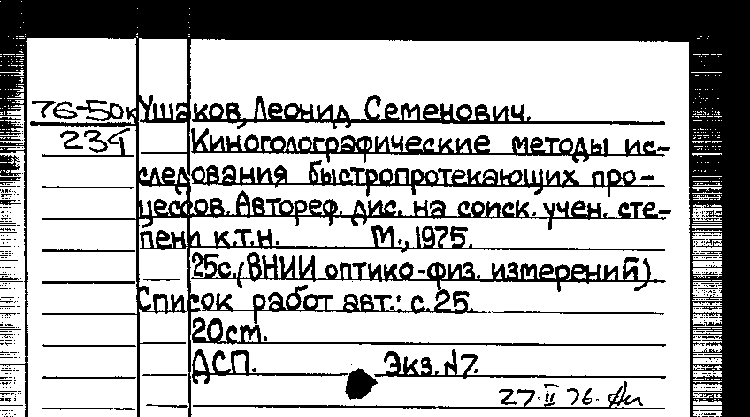 76-50к Ушаков, Леонид Семенович.
234 Киноголографические методы ис-
следования быстропротекающих про-
цессов. Автореф. дис. на соиск. учен. сте-
пени к.т.н. М., 1975.
25с. (ВНИИ оптико-физ. измерений).
Список работ авт.: с. 25.
20см.
ДСП. Экз. №7.
27.II 76.